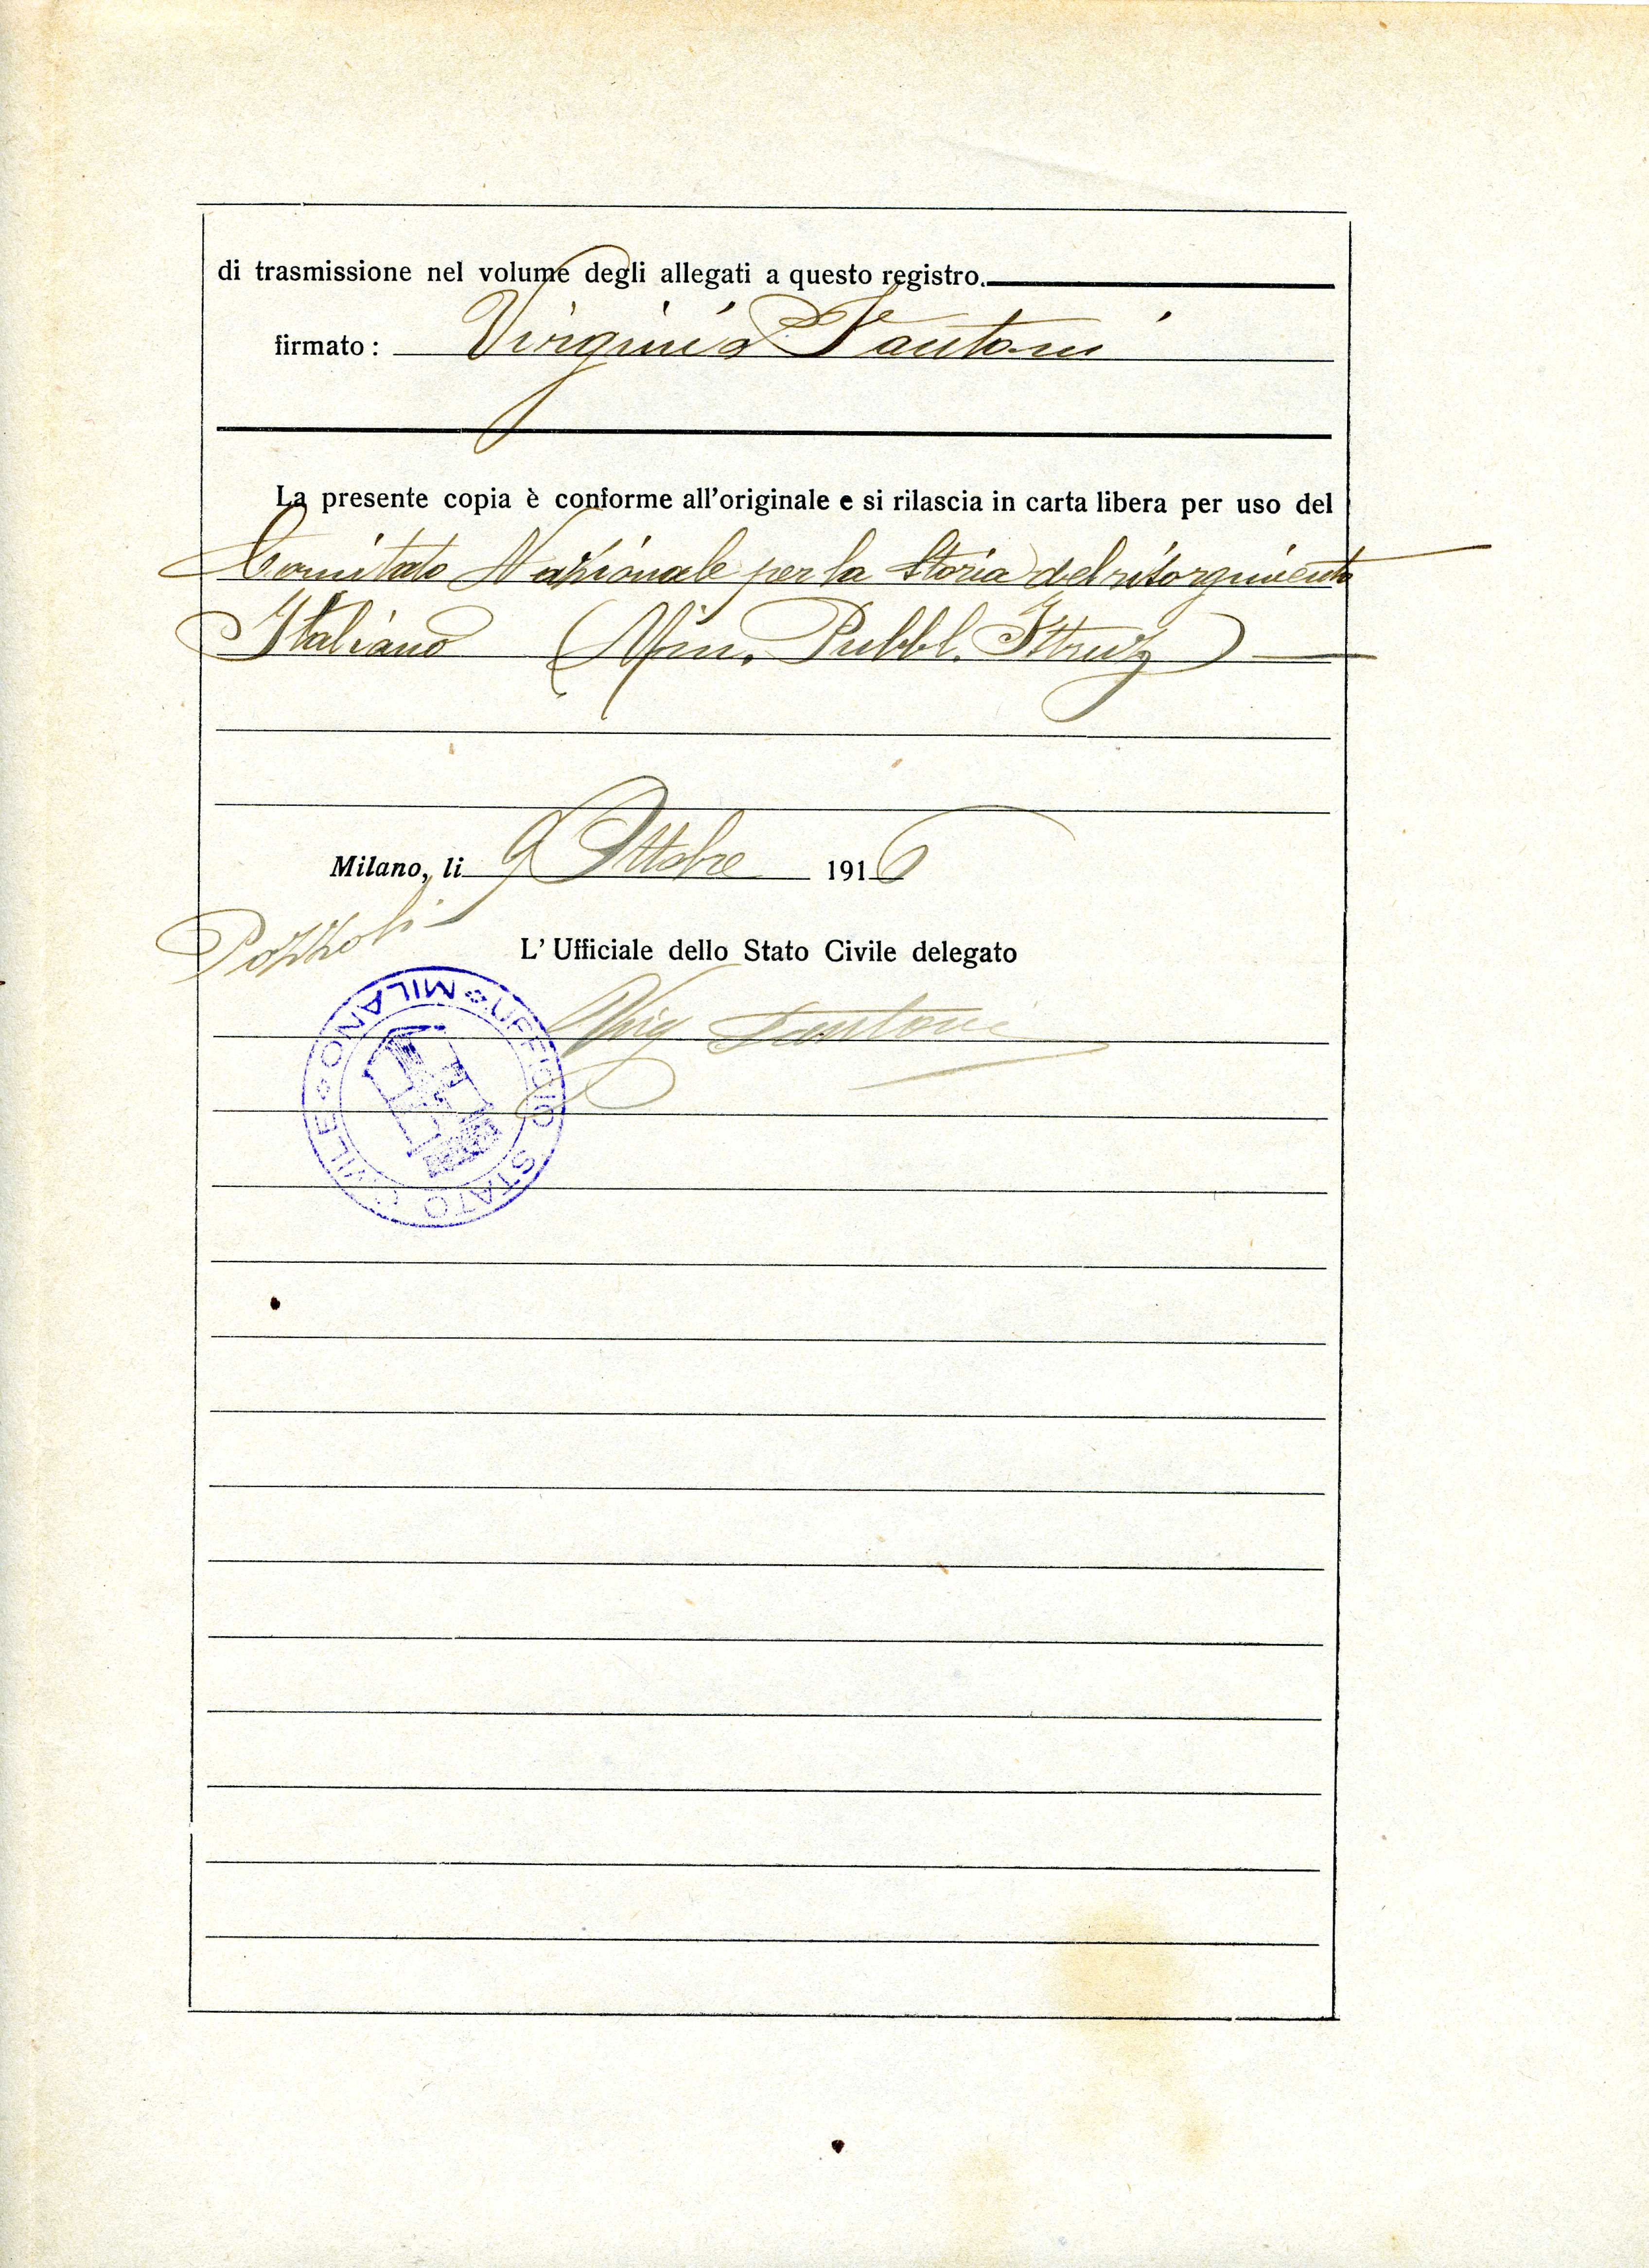 di trasmissione nel volume degli allegati a questo registro.
firmato : Virginio Fantoni
La presente copia è conforme all'originale e si rilascia in carta libera per uso del
Comitato Nazionale per la Storia del risorgimento
Italiano (Min. Pubbl. Istruz)
Milano, li 9 Ottobre 1916
Pozzoli
L' Ufficiale dello Stato Civile delegato
Virg Fantoni
UFFICIO STATO CIVILE MILANO